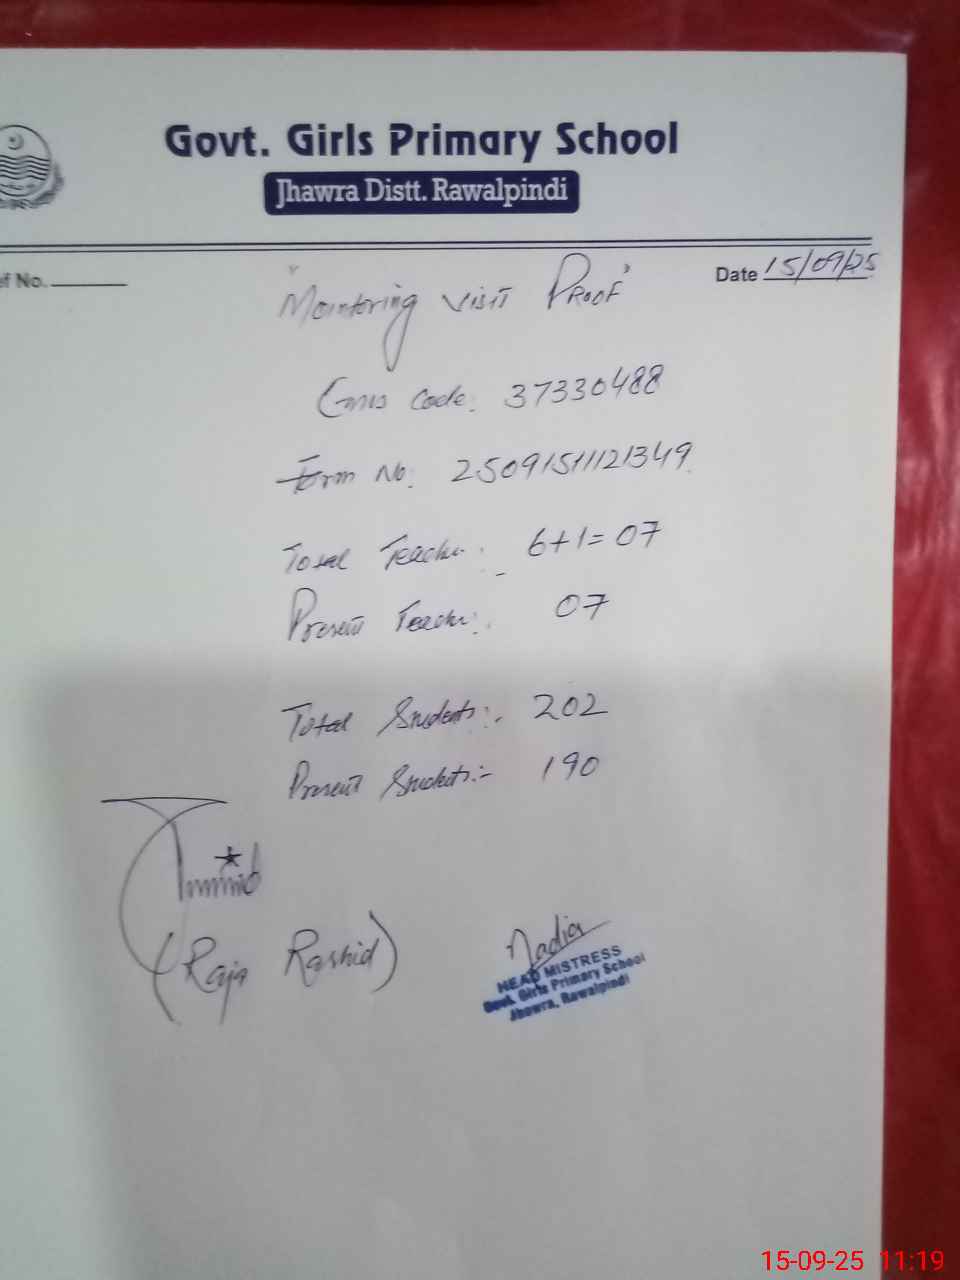 Govt. Girls Primary School
Jhawra Distt. Rawalpindi
ef No.
Date 15/09/25
"Monitoring Visit Proof"
Emis Code: 37330488
Form No: 2509151121349
Total Teacher: 6+1=07
Present Teacher: 07
Total Students:- 202
Present Students:- 190
(Raja Rashid)
Nadia
HEAD MISTRESS
Govt. Girls Primary School
Jhawra, Rawalpindi
15-09-25 11:19